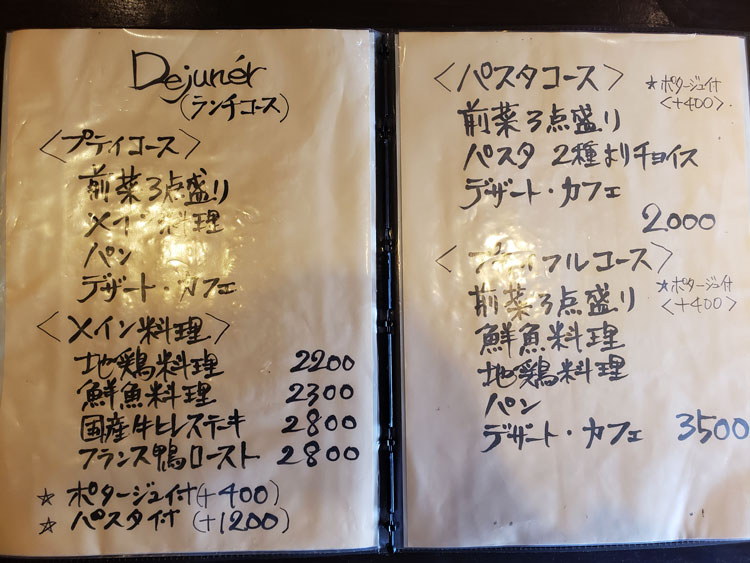 Dejunér
(ランチコース)
〈プティコース〉
前菜3点盛り
メイン料理
パン
デザート・カフェ
〈メイン料理〉
地鶏料理 2200
鮮魚料理 2300
国産牛ヒレステーキ 2800
フランス鴨ロースト 2800
☆ ポタージュ付(+400)
☆ パスタ付 (+1200)
〈パスタコース〉
★ポタージュ付
〈+400〉
前菜3点盛り
パスタ 2種よりチョイス
デザート・カフェ
2000
フルコース〉
★ポタージュ付
〈+400〉
前菜3点盛り
鮮魚料理
地鶏料理
パン
デザート・カフェ 3500